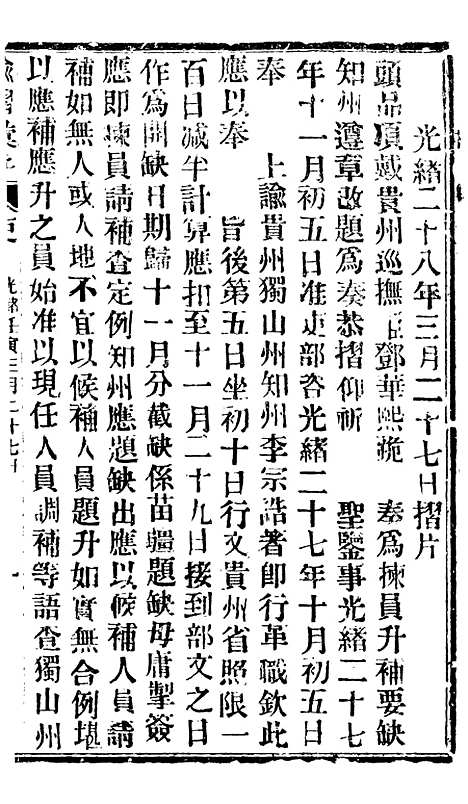 光緒二十八年三月二十七日摺片
頭品頂戴貴州巡撫臣鄧華熙跪　奏爲揀員升補要缺
知州遵章改題爲奏恭摺仰祈　聖鑒事光緒二十七
年十一月初五日准吏部咨光緒二十七年十月初五日
奉　上諭貴州獨山州知州李宗誥著卽行革職欽此
應以奉　旨後第五日坐初十日行文貴州省照限一
百日減半計算應扣至十一月二十九日接到部文之日
作爲開缺日期歸十一月分截缺係苗疆題缺毋庸掣簽
應卽揀員請補查定例知州應題缺出應以候補人員請
補如無人或人地不宜以候補人員題升如實無合例堪
以應補應升之員始准以現任人員調補等語查獨山州
諭摺彙存
光緒壬寅三月二十七日